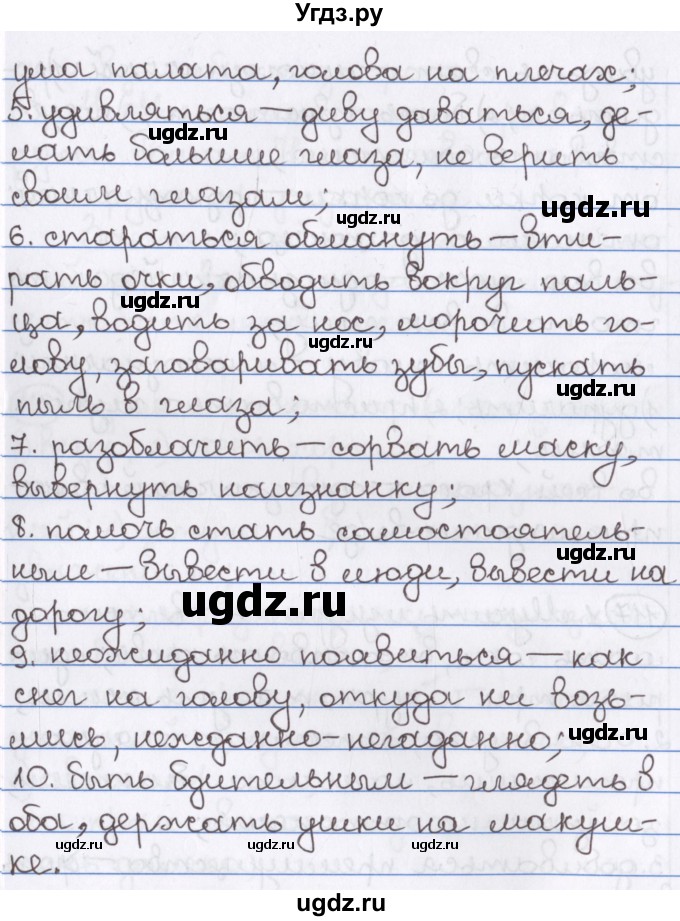 Угдз.ру
ума палата, голова на плечах;
ugdz.ru
5. удивляться — диву даваться, де-
ugdz.ru
лать большие глаза, не верить
своим глазам;
ugdz.ru
ugdz.ru
6. стараться обмануть — вти-
рать очки, обводить вокруг паль-
ugdz.ru
ца, водить за нос, морочить го-
ugdz.ru
лову, заговаривать зубы, пускать
ugdz.ru
пыль в глаза;
7. разоблачить — сорвать маску,
ugdz.ru
вывернуть наизнанку;
8. помочь стать самостоятель-
ugdz.ru
ным — вывести в люди, вывести на
ugdz.ru
дорогу;
9. неожиданно появиться — как
снег на голову, откуда ни возь-
ugdz.ru
мись, нежданно-негаданно;
10. быть бдительным — глядеть в
оба, держать ушки на макуш-
ugdz.ru ugdz.ru ugdz.ru
ке.
ugdz.ru